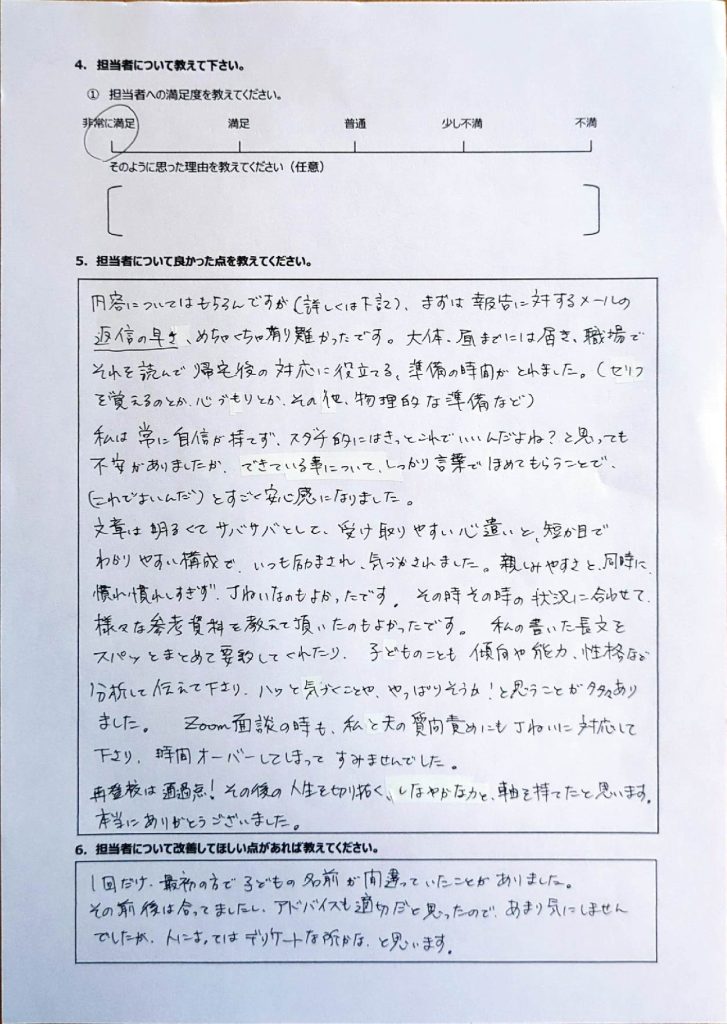 4. 担当者について教えて下さい。
① 担当者への満足度を教えてください。
非常に満足 満足 普通 少し不満 不満
そのように思った理由を教えてください（任意）
5. 担当者について良かった点を教えてください。
内容についてはもちろんですが（詳しくは下記）、まずは報告に対するメールの
返信の早さ、めちゃくちゃ有り難かったです。大体、昼までには届き、職場で
それを読んで帰宅後の対応に役立てる、準備の時間がとれました。（セリフ
を覚えるのとか、心づもりとか、その他、物理的な準備など）
私は常に自信が持てず、スダチ的にはきっとこれでいいんだよね？と思っても
不安がありましたが、できている事について、しっかり言葉でほめてもらうことで、
（これでよいんだ）とすごく安心感になりました。
文章は明るくてサバサバとして、受け取りやすい心遣いと、短か目で
わかりやすい構成で、いつも励まされ、気づかされました。親しみやすさと、同時に、
慣れ慣れしすぎず、丁ねいなのもよかったです。その時その時の状況に合わせて、
様々な参考資料を教えて頂いたのもよかったです。私の書いた長文を
スパッとまとめて要約してくれたり、子どものことも傾向や能力、性格など
分析して伝えて下さり、ハッと気づくことや、やっぱりそうか！と思うことが多々あり
ました。Zoom面談の時も、私と夫の質問責めにも丁ねいに対応して
下さり、時間オーバーしてしまってすみませんでした。
再登校は通過点！その後の人生を切り拓く、しなやかな力と、軸を持てたと思います。
本当にありがとうございました。
6. 担当者について改善してほしい点があれば教えてください。
1回だけ、最初の方で子どもの名前が間違っていたことがありました。
その前後は合ってましたし、アドバイスも適切だと思ったので、あまり気にしません
でしたが、人によってはデリケートな所かな、と思います。